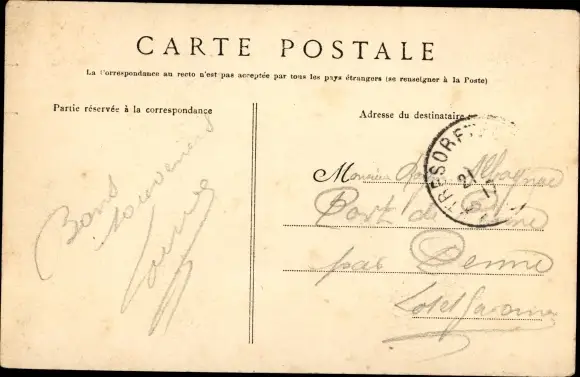 CARTE POSTALE
La Correspondance au recto n'est pas acceptée par tous les pays étrangers (se renseigner à la Poste)
Partie réservée à la correspondance
Adresse du destinataire
Bons
souvenirs
TRESOR ET
21
Monsieur
Port de
par
Lot et Garonne